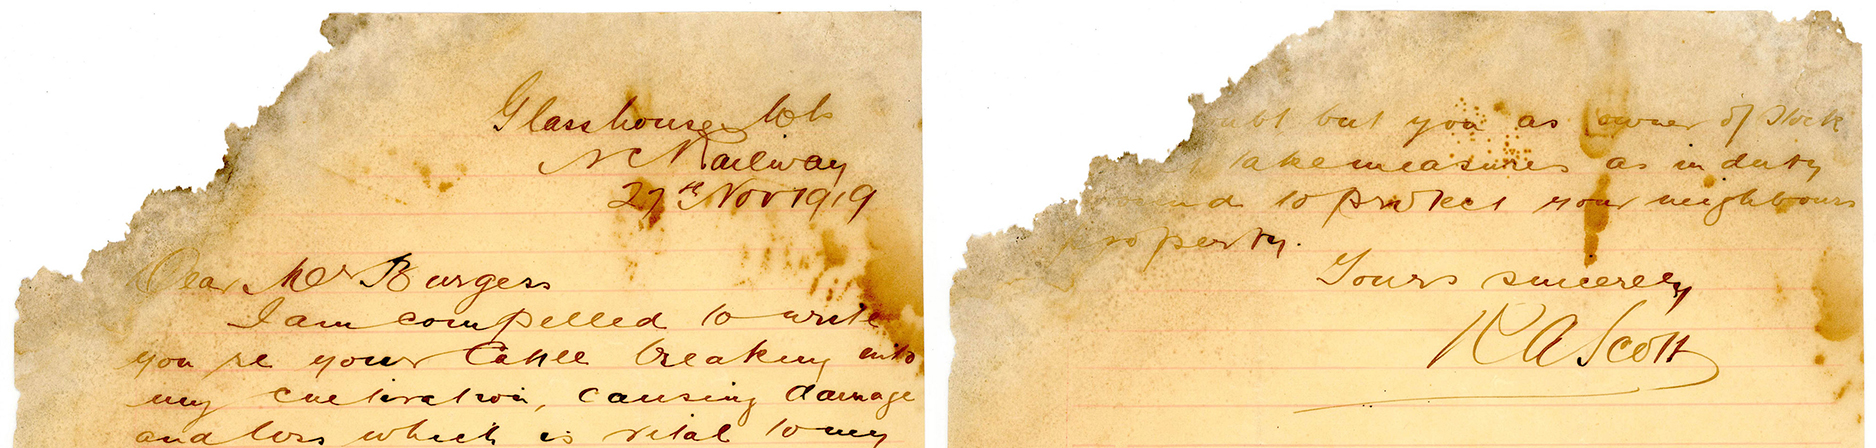 Glasshouse Mts
N C Railway
27th Nov 1919
Dear Mr Burgess
I am compelled to write
you re your Cattle breaking into
my cultivation, causing damage
and loss which is vital to my
but you as owner of Stock
take measures as in duty
to protect your neighbours
property.
Yours sincerely
R A Scott